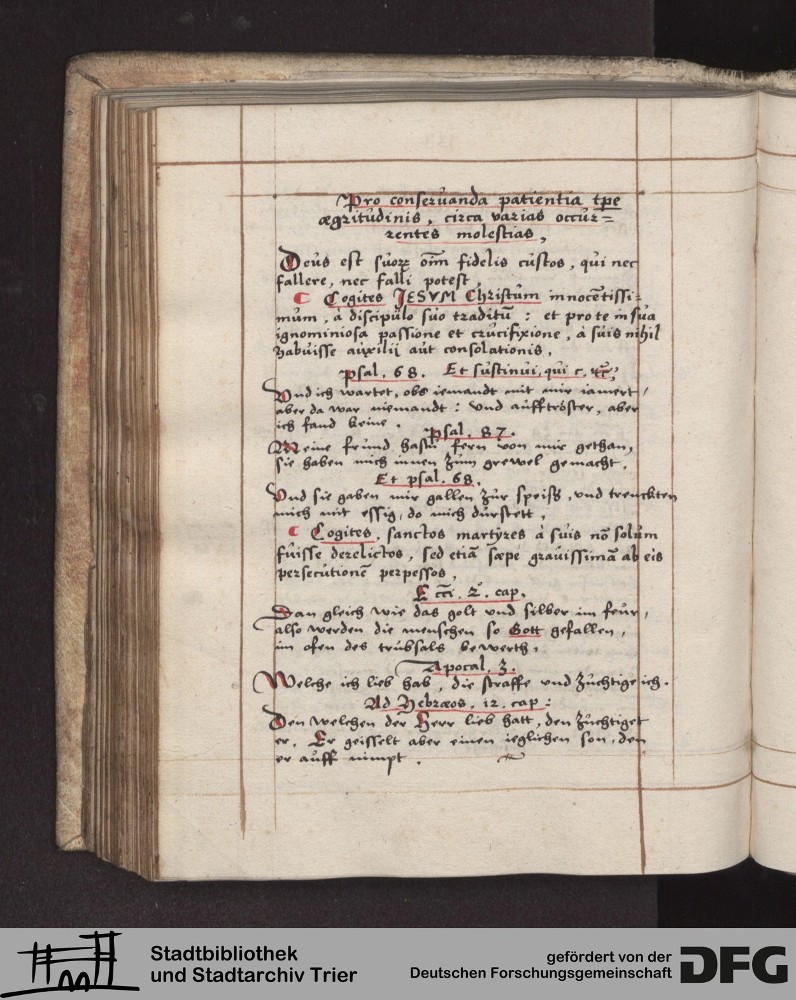 Pro conseruanda patientia tpe
ægritudinis, circa varias occur=
rentes molestias,
Deus est suorꝝ om̄ fidelis custos, qui nec
fallere, nec falli potest.
Cogites JESVM Christum innocētissi-
mum, à discipulo suo traditū : et pro te in sua
ignominiosa passione et crucifixione, à suis nihil
habuisse auxilij aut consolationis.
Psal. 68. Et sustinui, qui c,
Vnd ich wartet, obs iemandt mit mir iamert,
aber da war niemandt : vnd auff tröster, aber
ich fand keine.
Psal. 87.
Meine freund hastu fern von mir gethan,
sie haben mich innen zum grewel gemacht.
Et psal. 68.
Vnd sie gaben mir gallen zur speiss, vnd trenckten
mich mit essig, do mich durstett.
Cogites, sanctos martyres à suis nō solum
fuisse derelictos, sed etiā sæpe grauissimā ab eis
persecutionē perpessos.
Ecci. 2. cap.
Dan gleich wie das golt vnd silber im feur,
also werden die menschen so Gott gefallen,
im ofen des trübsals bewerth.
Apocal. 3.
Welche ich lieb hab, die straffe vnd züchtige ich.
Ad Hebræos. 12. cap:
Den welchen der Herr lieb hatt, den züchtiget
er. Er geisselt aber einen ieglichen son, den
er auff nimpt.
Stadtbibliothek
und Stadtarchiv Trier
gefördert von der
Deutschen Forschungsgemeinschaft
DFG